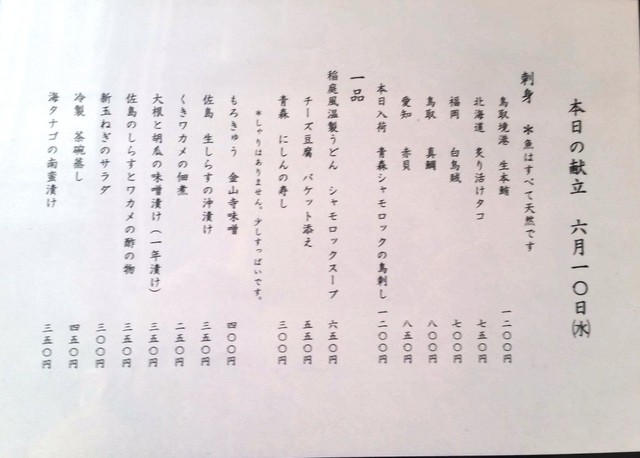 本日の献立　六月一〇日㈬
刺身　＊魚はすべて天然です
鳥取境港　生本鮪　一二〇〇円
北海道　炙り活けタコ　七五〇円
福岡　白烏賊　七〇〇円
鳥取　真鯛　八〇〇円
愛知　赤貝　八五〇円
本日入荷　青森シャモロックの鳥刺し　一二〇〇円
一品
稲庭風温製うどん　シャモロックスープ　六五〇円
チーズ豆腐　バケット添え　五五〇円
青森　にしんの寿し　三〇〇円
＊しゃりはありません。少しすっぱいです。
もろきゅう　金山寺味噌　四〇〇円
佐島　生しらすの沖漬け　三五〇円
くきワカメの佃煮　二五〇円
大根と胡瓜の味噌漬け（一年漬け）　三五〇円
佐島のしらすとワカメの酢の物　三五〇円
新玉ねぎのサラダ　三〇〇円
冷製　茶碗蒸し　四五〇円
海タナゴの南蛮漬け　三五〇円